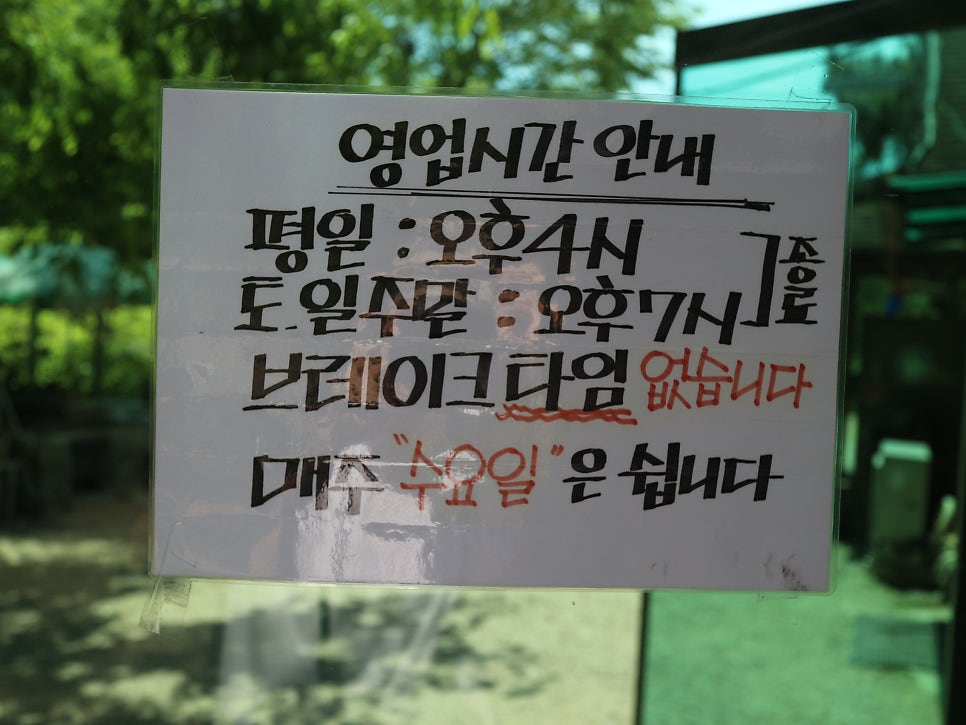 영업시간 안내
평일 : 오후 4시
토.일 주말 : 오후 7시
종료
브레이크 타임 없습니다
매주 "수요일"은 쉽니다